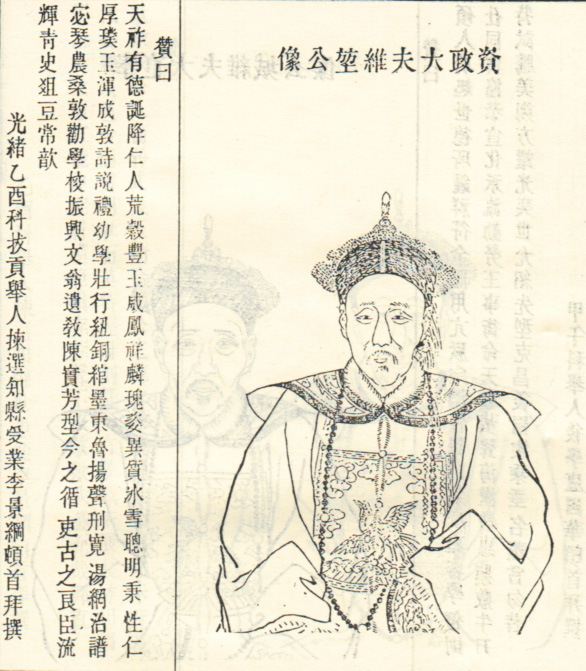 資政大夫維堃公像
贊曰
天祚有德誕降仁人荒穀豐玉威鳳祥麟瑰姿異質冰雪聰明秉性仁
厚璞玉渾成敦詩說禮幼學壯行紐銅綰墨東魯揚聲刑寬湯網治譜
宓琴農桑敦勸學校振興文翁遺教陳實芳型今之循吏古之良臣流
輝靑史俎豆常歆
光緒乙酉科拔貢舉人揀選知縣受業李景綱頓首拜撰